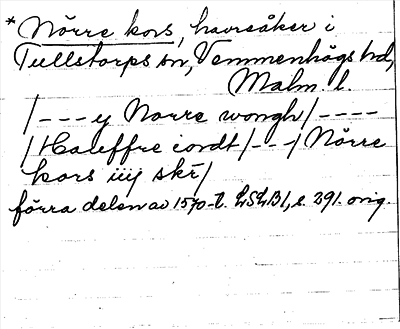 * Nörre kors, havreåker i
Tullstorps sn, Vemmenhögs hd,
Malm. l.
/---y Norre wongh/----
/Haleffre iordt/---/Nörre
kors iiij skr̄/
förra delen av 1570-t. LSLB1, s. 291. orig.